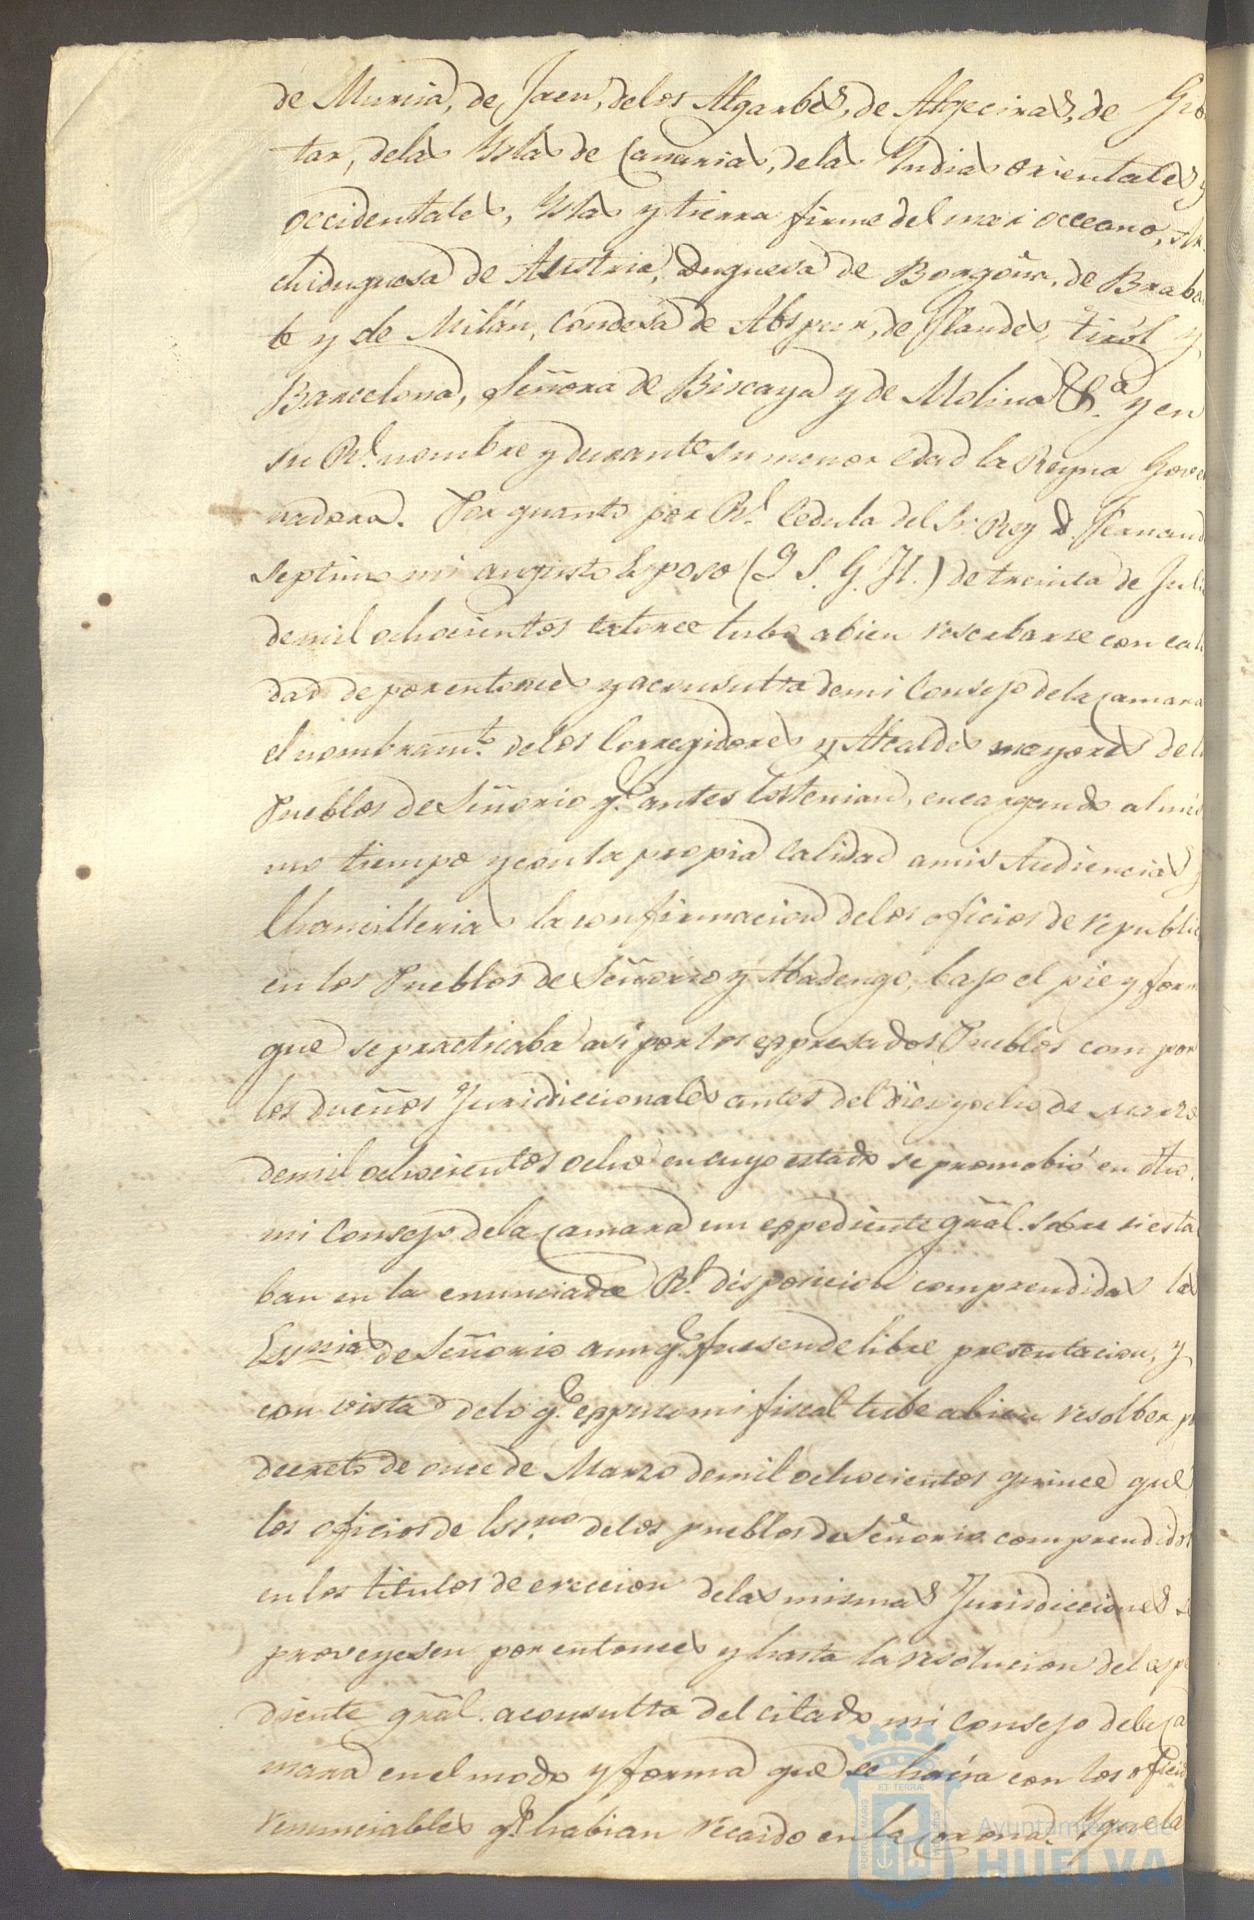 de Murcia, de Jaen, delos Algarbes, de Algeciras, de Gi
tar, delas Yslas de Canarias, delas Yndias orientales y
occidentales, Yslas y tierra firme del mar occeano, Ar
chiduquesa de Austria, Duquesa de Borgoña, de Braba
te y de Milán, Condesa de Abspur, de Flandes, tiról y
Barcelona, Señora de Biscaya y de Molina &.ª y en
su Rl. nombre y durante su menor edad la Reyna Gove
nadora. Por quanto por Rl. Cedula del Sr. Rey D. Fernand
septimo mi augusto Esposo (Q. S. G. H.) de treinta de Juli
demil ochocientos catorce tubo abien reserbarse con cali
dad de por entonces y aconsulta demi Consejo dela Camara
el nombramto. delos Corregidores y Alcaldes mayores del
Pueblos de Señorio qe. antes los tenian, encargando al mis
mo tiempo y con la propia calidad amis Audiencias y
Chancillerias la confirmacion delos oficios de republic
en los Pueblos de Señorio y Abadengo, bajo el pie y form
que se practicaba asi por los expresados Pueblos com por
los dueños Juridiccionales antes del diez y ocho de marzo
demil ochocientos ocho en cuyo estado se promobió en dho.
mi Consejo dela Camara un expediente gñal. sobre si esta
ban en la enunciada Rl. disposicion comprendidas las
Essnias de Señorio aunqe. fuesen de libre presentacion, y
con vista delo qe. expuso mi fiscal tube abien resolber p
decreto de once de Marzo demil ochocientos quince que
los oficios de Essno delos pueblos de Señorio comprendidos
en los titulos de ereccion delas mismas Jurisdicciones s
proveyesen por entonces y hasta la resolucion del espe
diente gñal. aconsulta del citado mi Consejo dela Ca
mara en el modo y forma que se hacia con los oficio
renunciables qe. habian recaido en la Corona. Y que la
PORTUS MARIS
ET TERRÆ
CUSTODIA
Ayuntamiento de
HUELVA